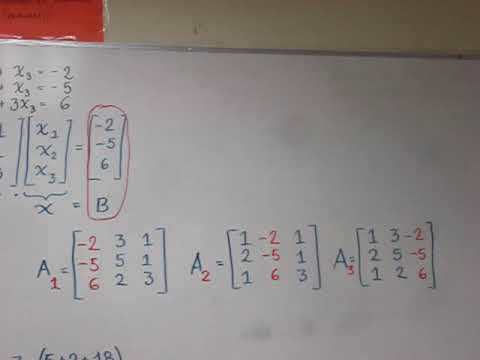 x₃ = -2
x₃ = -5
+ 3x₃ = 6
[x₁ x₂ x₃] = [-2 -5 6]
x = B
A₁ = [-2 3 1; -5 5 1; 6 2 3] A₂ = [1 -2 1; 2 -5 1; 1 6 3] A₃ = [1 3 -2; 2 5 -5; 1 2 6]
(5+2+18)